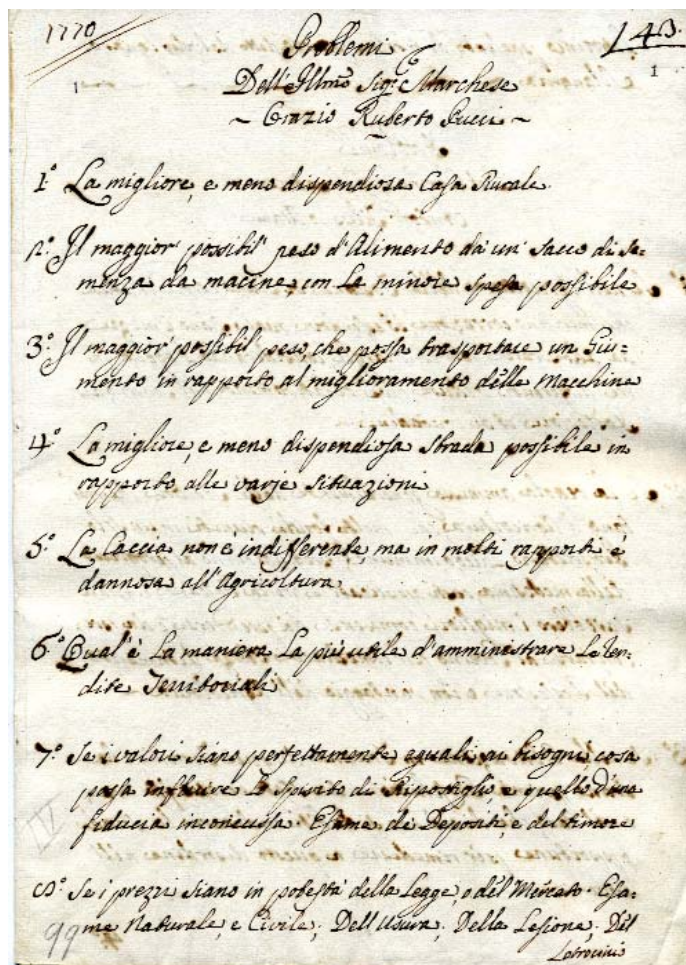 1770
143.
1
1
Problemi
Dell'Illmo Sigre Marchese
~ Orazio Ruberto Pucci ~
1.° La migliore, e meno dispendiosa Casa Rurale.
2.° Il maggior possibil' peso d'Alimento da un' sacco di se=
menza da macine, con la minore spesa possibile
3.° Il maggior' possibil' peso, che possa trasportare un Giu=
mento in rapporto al miglioramento delle Macchine
4.° La migliore, e meno dispendiosa strada possibile in
rapporto alle varje situazioni
5.° La Caccia non è indifferente, ma in molti rapporti è
dannosa all'Agricoltura
6.° Qual'è La maniera La più utile d'amministrare Le Ren=
dite Territoriali
7.° Se i valori siano perfettamente eguali ai bisogni cosa
possa influire Lo spirito di Ripostiglio, e quello d'una
fiducia inconcussa. Esame de Depositi e del timore
IV
8.° Se i prezzi siano in podestà della Legge, o dèl Mercato. Esa=
me Naturale, e Civile; Dell'Usura; Della Lesione; Dèl
Latrocinio
99